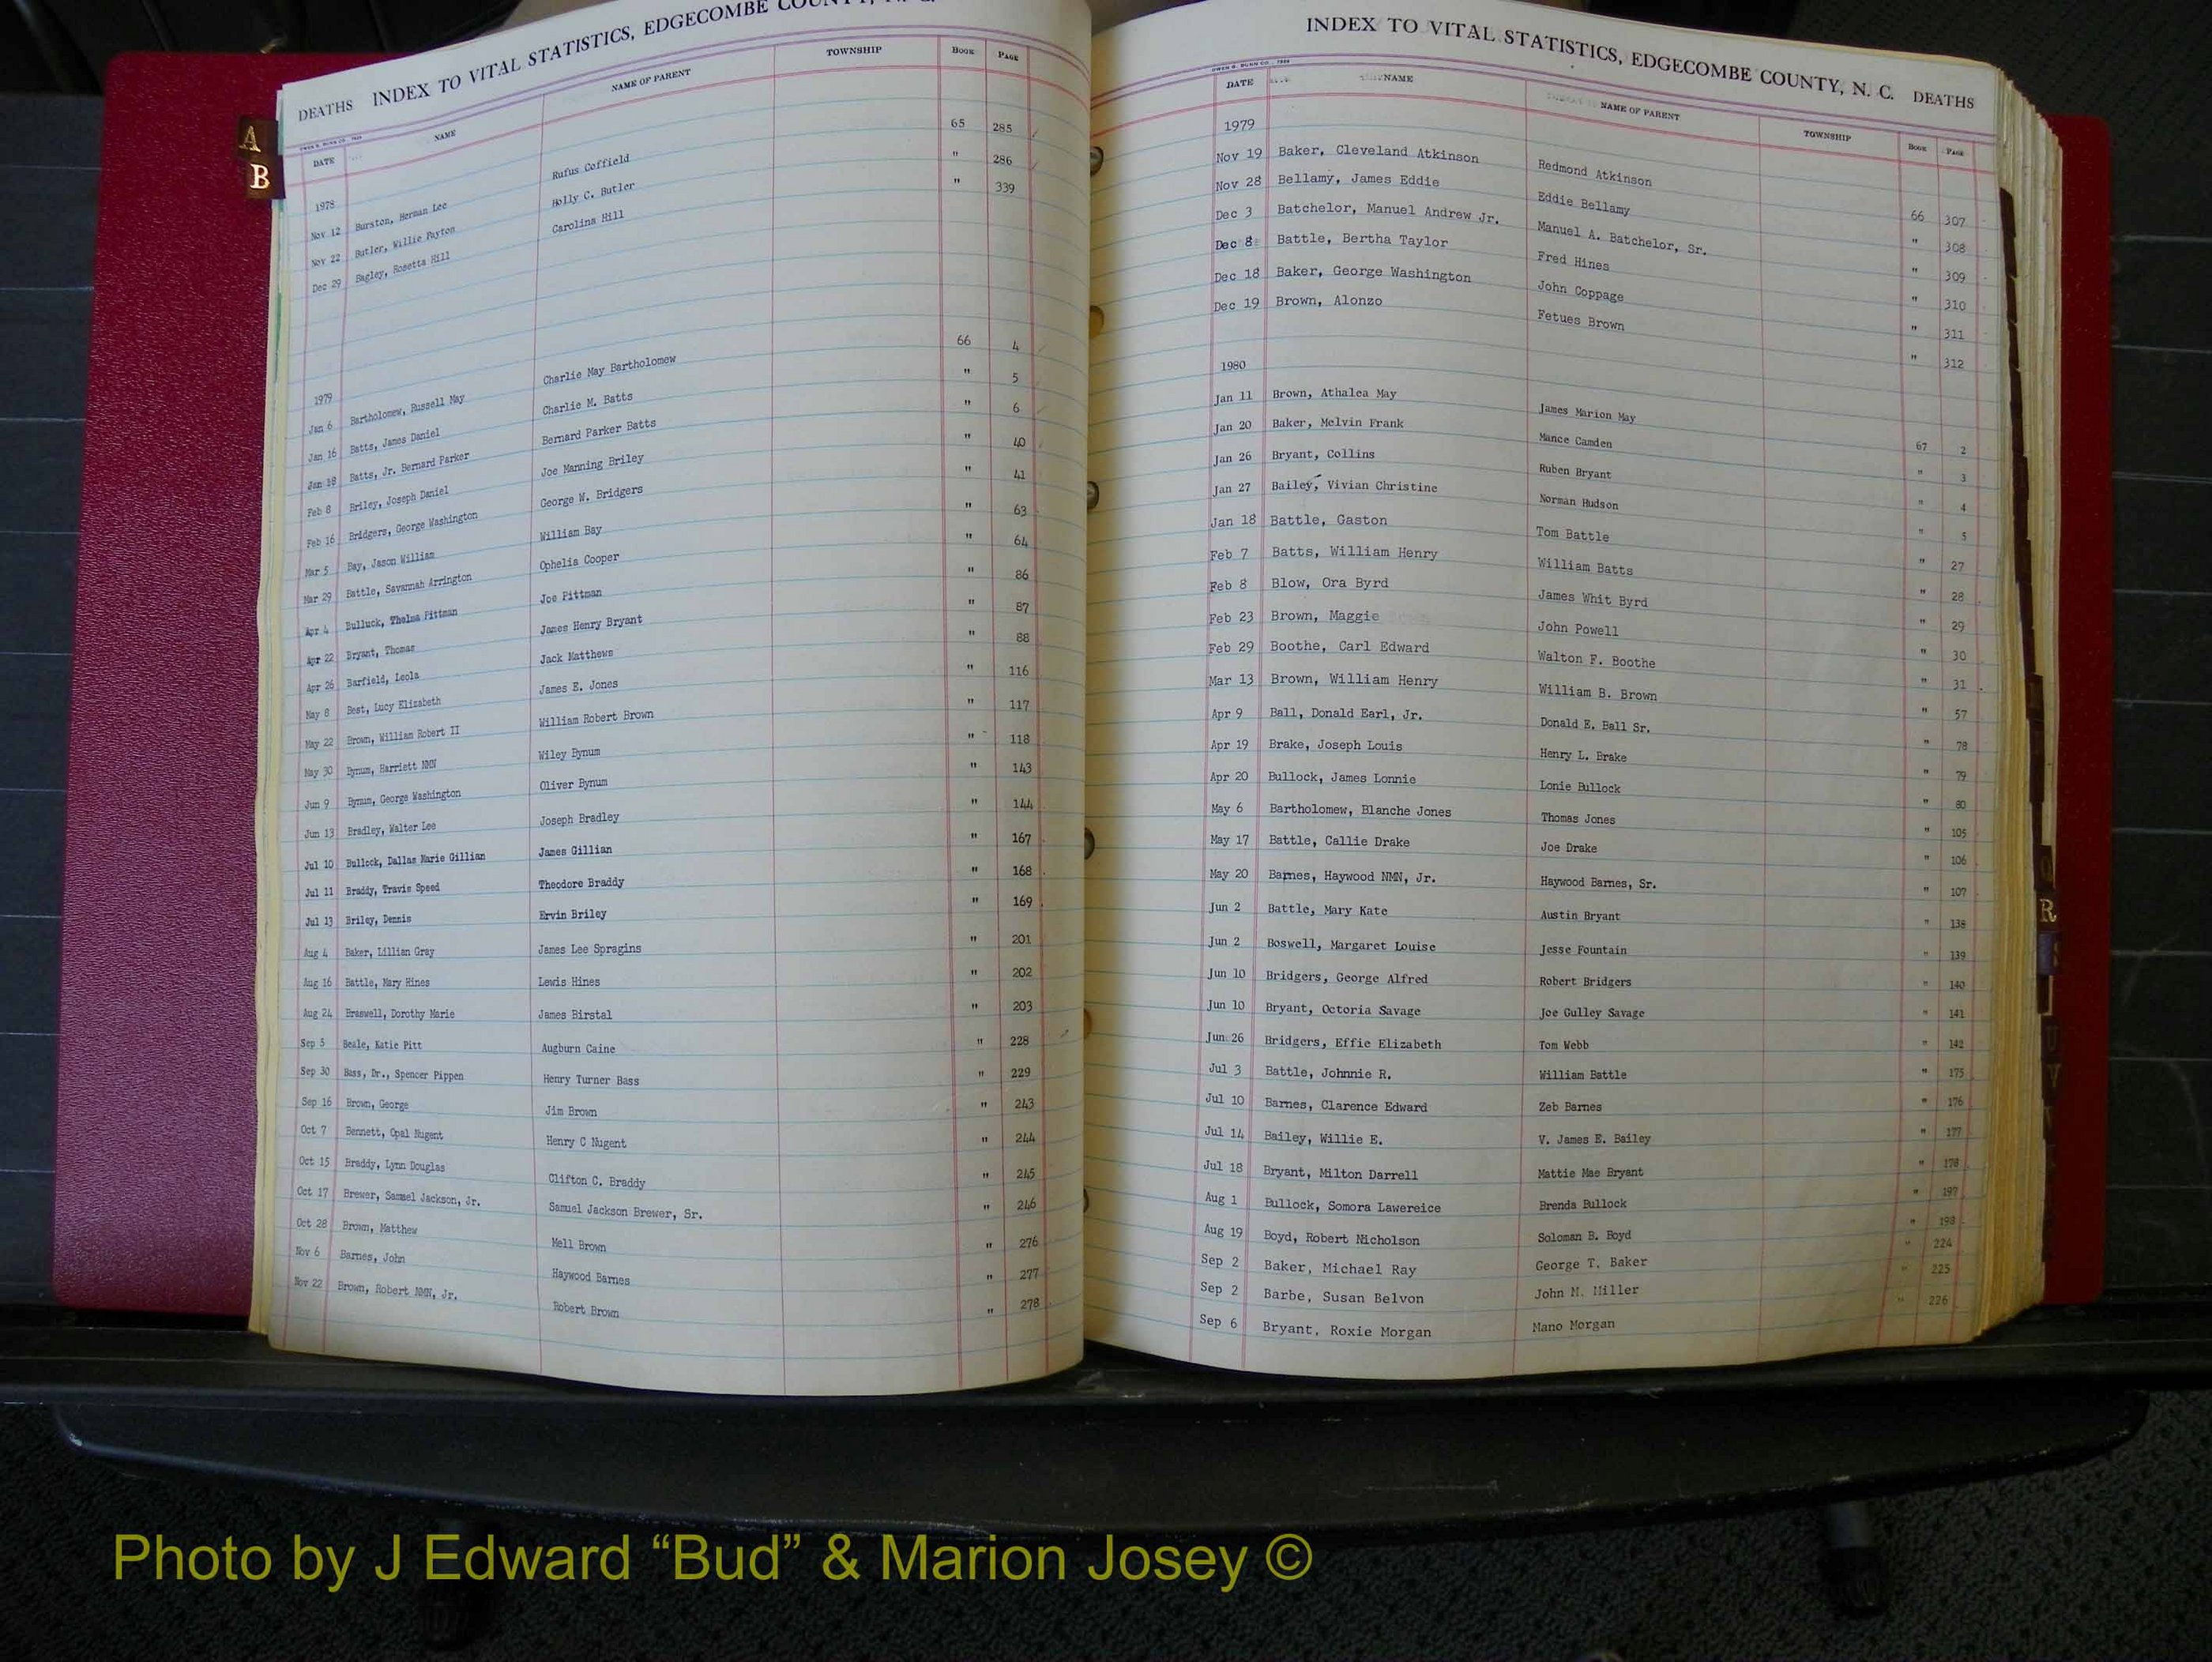 A
B
DEATHS INDEX TO VITAL STATISTICS, EDGECOMBE COUNTY, N. C.
DATE NAME NAME OF PARENT TOWNSHIP BOOK PAGE
1978
Nov 12 Burston, Herman Lee Rufus Coffield 65 285
Nov 22 Butler, Willie Payton Holly C. Butler " 286
Dec 29 Bagley, Rosetta Hill Carolina Hill " 339
1979
Jan 6 Bartholomew, Russell May Charlie May Bartholomew 66 4
Jan 16 Batts, James Daniel Charlie M. Batts " 5
Jan 18 Batts, Jr. Bernard Parker Bernard Parker Batts " 6
Feb 8 Briley, Joseph Daniel Joe Manning Briley " 40
Feb 16 Bridgers, George Washington George W. Bridgers " 41
Mar 5 Bay, Jason William William Bay " 63
Mar 29 Battle, Savannah Arrington Ophelia Cooper " 64
Apr 4 Bulluck, Thelma Pittman Joe Pittman " 86
Apr 22 Bryant, Thomas James Henry Bryant " 87
Apr 26 Barfield, Leola Jack Matthews " 88
May 8 Best, Lucy Elizabeth James E. Jones " 116
May 22 Brown, William Robert II William Robert Brown " 117
May 30 Bynum, Harriett NMN Wiley Bynum " 118
Jun 9 Bynum, George Washington Oliver Bynum " 143
Jun 13 Bradley, Walter Lee Joseph Bradley " 144
Jul 10 Bullock, Dallas Marie Gillian James Gillian " 167
Jul 11 Braddy, Travis Speed Theodore Braddy " 168
Jul 13 Briley, Dennis Ervin Briley " 169
Aug 4 Baker, Lillian Gray James Lee Spragins " 201
Aug 16 Battle, Mary Hines Lewis Hines " 202
Aug 24 Braswell, Dorothy Marie James Birstal " 203
Sep 5 Beale, Katie Pitt Augburn Caine " 228
Sep 30 Bass, Dr., Spencer Pippen Henry Turner Bass " 229
Sep 16 Brown, George Jim Brown " 243
Oct 7 Bennett, Opal Nugent Henry C Nugent " 244
Oct 15 Braddy, Lynn Douglas Clifton C. Braddy " 245
Oct 17 Brewer, Samuel Jackson, Jr. Samuel Jackson Brewer, Sr. " 246
Oct 28 Brown, Matthew Mell Brown " 276
Nov 6 Barnes, John Haywood Barnes " 277
Nov 22 Brown, Robert NMN, Jr. Robert Brown " 278
INDEX TO VITAL STATISTICS, EDGECOMBE COUNTY, N. C. DEATHS
DATE NAME NAME OF PARENT TOWNSHIP BOOK PAGE
1979
Nov 19 Baker, Cleveland Atkinson Redmond Atkinson 66 307
Nov 28 Bellamy, James Eddie Eddie Bellamy " 308
Dec 3 Batchelor, Manuel Andrew Jr. Manuel A. Batchelor, Sr. " 309
Dec 8 Battle, Bertha Taylor Fred Hines " 310
Dec 18 Baker, George Washington John Coppage " 311
Dec 19 Brown, Alonzo Fetues Brown " 312
1980
Jan 11 Brown, Athalea May James Marion May 67 2
Jan 20 Baker, Melvin Frank Mance Camden " 3
Jan 26 Bryant, Collins Ruben Bryant " 4
Jan 27 Bailey, Vivian Christine Norman Hudson " 5
Jan 18 Battle, Gaston Tom Battle " 27
Feb 7 Batts, William Henry William Batts " 28
Feb 8 Blow, Ora Byrd James Whit Byrd " 29
Feb 23 Brown, Maggie John Powell " 30
Feb 29 Boothe, Carl Edward Walton F. Boothe " 31
Mar 13 Brown, William Henry William B. Brown " 57
Apr 9 Ball, Donald Earl, Jr. Donald E. Ball Sr. " 78
Apr 19 Brake, Joseph Louis Henry L. Brake " 79
Apr 20 Bullock, James Lonnie Lonie Bullock " 80
May 6 Bartholomew, Blanche Jones Thomas Jones " 105
May 17 Battle, Callie Drake Joe Drake " 106
May 20 Barnes, Haywood NMN, Jr. Haywood Barnes, Sr. " 107
Jun 2 Battle, Mary Kate Austin Bryant " 138
Jun 2 Boswell, Margaret Louise Jesse Fountain " 139
Jun 10 Bridgers, George Alfred Robert Bridgers " 140
Jun 10 Bryant, Octoria Savage Joe Gulley Savage " 141
Jun 26 Bridgers, Effie Elizabeth Tom Webb " 142
Jul 3 Battle, Johnnie R. William Battle " 175
Jul 10 Barnes, Clarence Edward Zeb Barnes " 176
Jul 14 Bailey, Willie E. V. James E. Bailey " 177
Jul 18 Bryant, Milton Darrell Mattie Mae Bryant " 178
Aug 1 Bullock, Somora Lawereice Brenda Bullock " 197
Aug 19 Boyd, Robert Nicholson Soloman B. Boyd " 198
Sep 2 Baker, Michael Ray George T. Baker " 224
Sep 2 Barbe, Susan Belvon John M. Miller " 225
Sep 6 Bryant, Roxie Morgan Mano Morgan " 226
R
Photo by J Edward “Bud” & Marion Josey ©